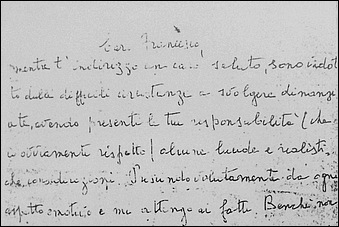 Caro Francesco,
mentre t'indirizzo un caro saluto, sono indot
to dalle difficili circostanze a svolgere dinanzi
a te, avendo presenti le tue responsabilità (che
io ovviamente rispetto) alcune lucide e realisti
che considerazioni. Prescindo volutamente da ogni
aspetto emotivo e mi attengo ai fatti. Benché non